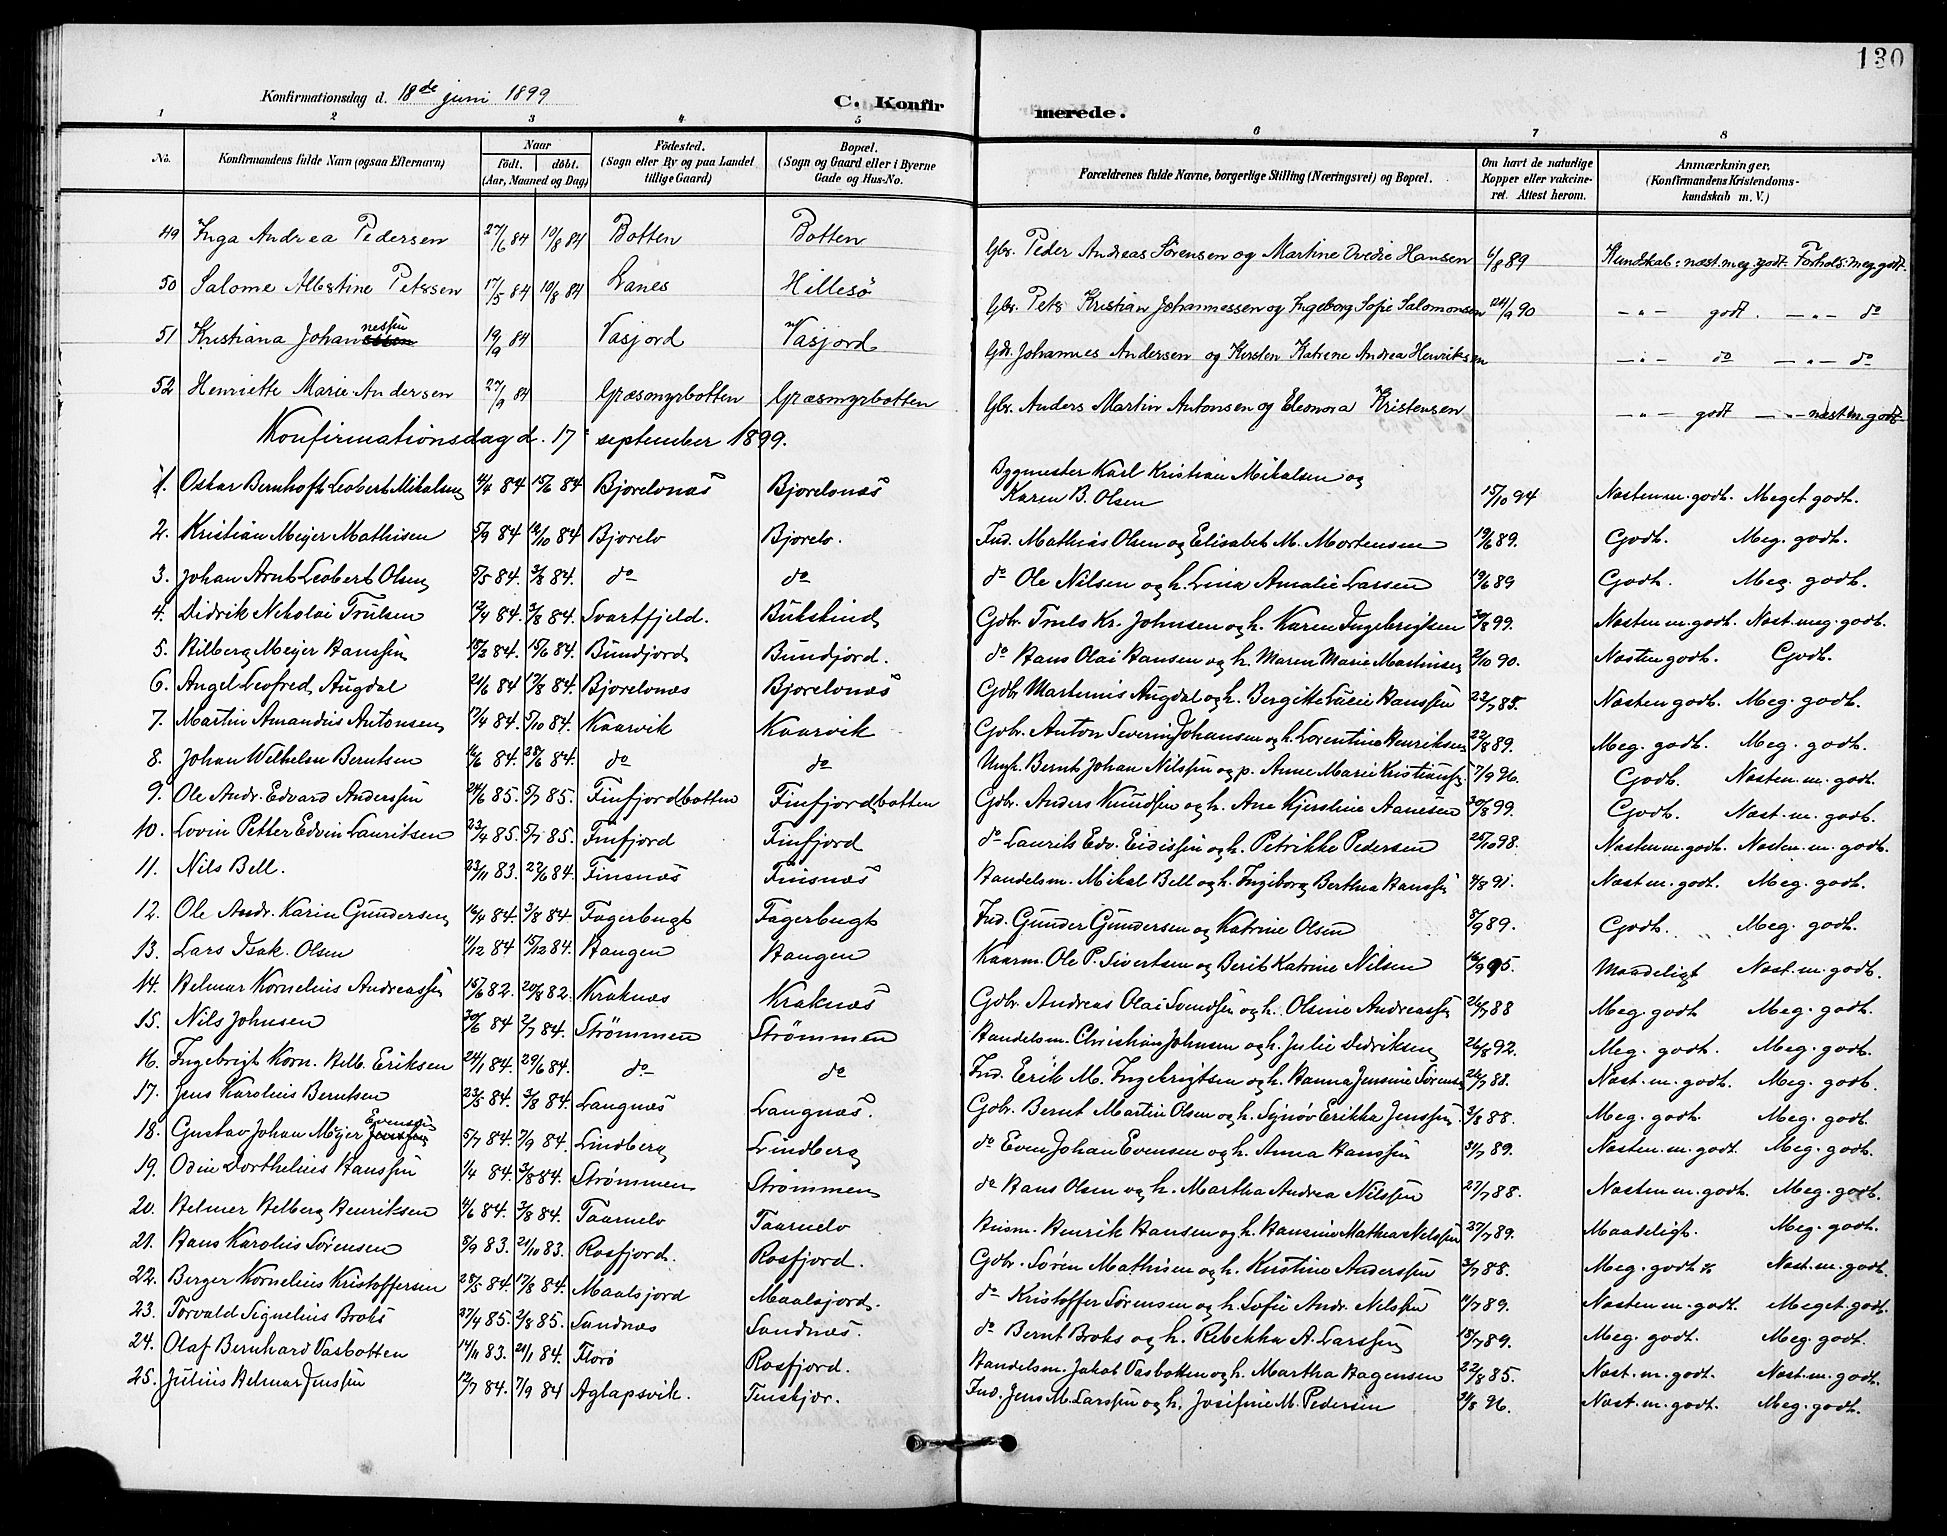 130
Konfirmationsdag d. 18de juni 1899
C. Konfirmerede.
1 2 3 4 5 6 7 8
No. Konfirmandens fulde Navn (ogsaa Efternavn) Naar født. døbt. (Aar, Maaned og Dag) Fødested. (Sogn eller By og paa Landet tillige Gaard) Bopæl. (Sogn og Gaard eller i Byerne Gade og Hus-No. Forældrenes fulde Navne, borgerlige Stilling (Næringsvei) og Bopæl. Om havt de naturlige Kopper eller vakcineret. Attest herom. Anmærkninger. (Konfirmandens Kristendomskundskab m. V.)
49 Inga Andrea Pedersen 27/6 84 10/8 84 Botten Botten Gbr. Peder Andreas Sørensen og Martine Ovedie Hansen 6/8 89 Kundskab: næst. meg. godt. Forhold: meg. godt.
50 Salome Albertine Petersen 17/5 84 10/8 84 Lanes Hillesö Gbr. Peter Kristian Johannessen og Ingeborg Sofie Salomonsen 24/9 90 -"- godt. -"- do
51 Kristiana Johannessen 19/9 84 Vasjord Vasjord Gbr. Johannes Andersen og Kirsten Katrine Andrea Henriksen -"- do -"- do
52 Henriette Marie Andersen 27/9 84 Græsmyrbotten Græsmyrbotten Gbr. Anders Martin Antonsen og Eleonora Kristensen -"- godt -"- næst m. godt.
Konfirmationsdag d. 17 september 1899.
1. Oskar Bernhoft Leobert Mikalsen 4/4 84 15/6 84 Bjorelvnæs Bjorelvnæs Bygmester Karl Kristian Mikalsen og
Karen B. Olsen 15/10 94 Næsten m. godt. Meget godt.
2. Kristian Meyer Mathisen 5/9 84 12/10 84 Bjorelv Bjorelv. Ind. Mathias Olsen og Elisabet M. Mortensen 19/6 89. Godt. Meg. godt.
3. Johan Arnt Leobert Olsen 5/5 84. 3/8 84. do do do Ole Nilsen og h. Lina Amalie Larsen 19/6 89 Godt. Meg. godt.
4. Didrik Nikolai Trulsen 12/4 84. 3/8 84. Svartfjeld. Bukskind Gdbr. Truls Kr. Johnsen og h. Karen Ingebrigtsen 30/8 99. Næsten m. godt. Næst. meg. godt.
5. Hilberg Meyer Hanssen 15/3 84. 15/6 84. Bundjord Bundjord. do Hans Olai Hansen og h. Maren Marie Martinsen 2/10 90. Næsten godt. Godt.
6. Angel Leofred Augdal 21/6 84 17/8 84. Bjorelvnæs Bjorelvnæs Gdbr Martinus Augdal og h. Bergitte Lucie Hanssen 23/7 85. Næsten godt. Meg. godt.
7. Martin Amandus Antonsen 17/4 84. 5/10 84. Kaarvik Kaarvik Gdbr. Anton Severin Johansen og h. Lorentine Henriksen 22/8 89. Meg. godt. Meg. godt.
8. Johan Wilhelm Berntsen 16/6 84. 28/6 84. do do Ungk. Bernt Johan Nilssen og p. Anne Marie Kristianssen 7/9 96. Godt. Næsten. m. godt.
9. Ole Andr. Edvard Anderssen 24/6 85. 5/7 85. Finfjordbotten Finfjordbotten Gdbr. Anders Knudsen og h. Ane Kjerstine Aanesen 30/8 99. Godt. Næst. m. godt.
10. Lovin Petter Edvin Lauritsen 23/4 85. 5/7 85. Finfjord Finfjord do Laurits Edv. Eidissen og h. Petrikke Pedersen 25/10 98. Næsten m. godt. Næsten. m. godt.
11. Nils Bell. 23/11 83. 22/6 84. Finsnæs Finsnæs Handelsm. Mikal Bell og h. Ingeborg Berthea Hanssen 4/8 91. Næst m. godt. Meg. godt.
12. Ole Andr. Karin Gundersen 16/4 84. 3/8 84. Fagerbugt Fagerbugt Ind. Gunder Gundersen og Katrine Olsen 8/9 89. Godt. Meg. godt.
13. Lars Isak Olsen 11/12 84 15/12 84. Haugen Haugen Kaarm. Ole P. Sivertsen og Berit Katrine Nilsen 16/9 95. Maadeligt Næst. m. godt.
14. Helmar Kornelius Andreassen 15/6 82. 20/8 82. Kraknæs Kraknæs Gdbr. Andreas Olai Svendsen og h. Olsine Andreassen 26/7 88 Meg. godt Meg. godt.
15. Nils Johnsen 30/6 84 2/7 84. Strömmen Strömmen Handelsm. Christian Johnsen og h. Julie Didriksen 26/8 92. Meg. godt. Meg. godt.
16. Ingebrigt Korn. Helb. Eriksen 24/1 84. 29/6 84. do do Ind. Erik M. Ingebrigtsen og h. Hanna Jensine Sørensen 26/7 88. Næst. m. godt. Meg. godt.
17. Jens Karolius Berntsen 23/5 84. 3/8 84. Langnæs Langnæs. Gdbr. Bernt Martin Olsen og h. Synøv Erikke Jenssen 3/8 88. Meg. godt. Meg. godt.
18. Gustav Johan Meyer Evensen 5/7 84. 7/9 84. Lindberg Lindberg do Even Johan Evensen og h. Anna Hanssen 31/7 89. Næsten. m. godt. Meg. godt.
19. Odin Dorthelius Hanssen 1/4 84. 3/8 84. Strømmen Strømmen do Hans Olsen og h. Martha Andrea Nilssen 27/7 88. Næsten m. godt. Meg. godt.
20. Helmer Helberg Henriksen 4/6 84. 3/8 84. Taarnelv Taarnelv Husm. Henrik Hansen og h. Hansine Mathea Nilssen 27/7 89. Maadeligt. Meg. godt.
21. Hans Karolius Sørensen 8/9 83. 21/10 83. Rosfjord. Rosfjord. Gdbr. Søren Mathisen og h. Kristine Anderssen 3/7 88. Meg. godt Næst. m. godt.
22. Berger Kornelius Kristoffersen 28/5 84. 17/8 84. Maalsjord Maalsjord. do Kristoffer Sørensen og h. Sofie Andr. Nilssen 11/7 89. Næsten m. godt. Meget. godt.
23. Torvald Signelius Broks 27/4 85. 2/8 85. Sandnæs Sandnæs. do Bernt Broks og h. Rebekka A. Larssen 18/7 89. Meg. godt. Meg. godt.
24. Olaf Bernhard Vasbotten 14/11 83. 21/1 84. Florö Rosfjord. Handelsm. Jakob Vasbotten og h. Martha Hagensen 22/8 85. Næst. m. godt. Næst. m. godt.
25. Julius Helmar Jenssen 12/7 84. 7/9 84 Aglapsvik. Tenskjær. Ind. Jens M. Larssen og h. Josefine M. Pedersen 21/8 96. Næst. m. godt. Meg. godt.